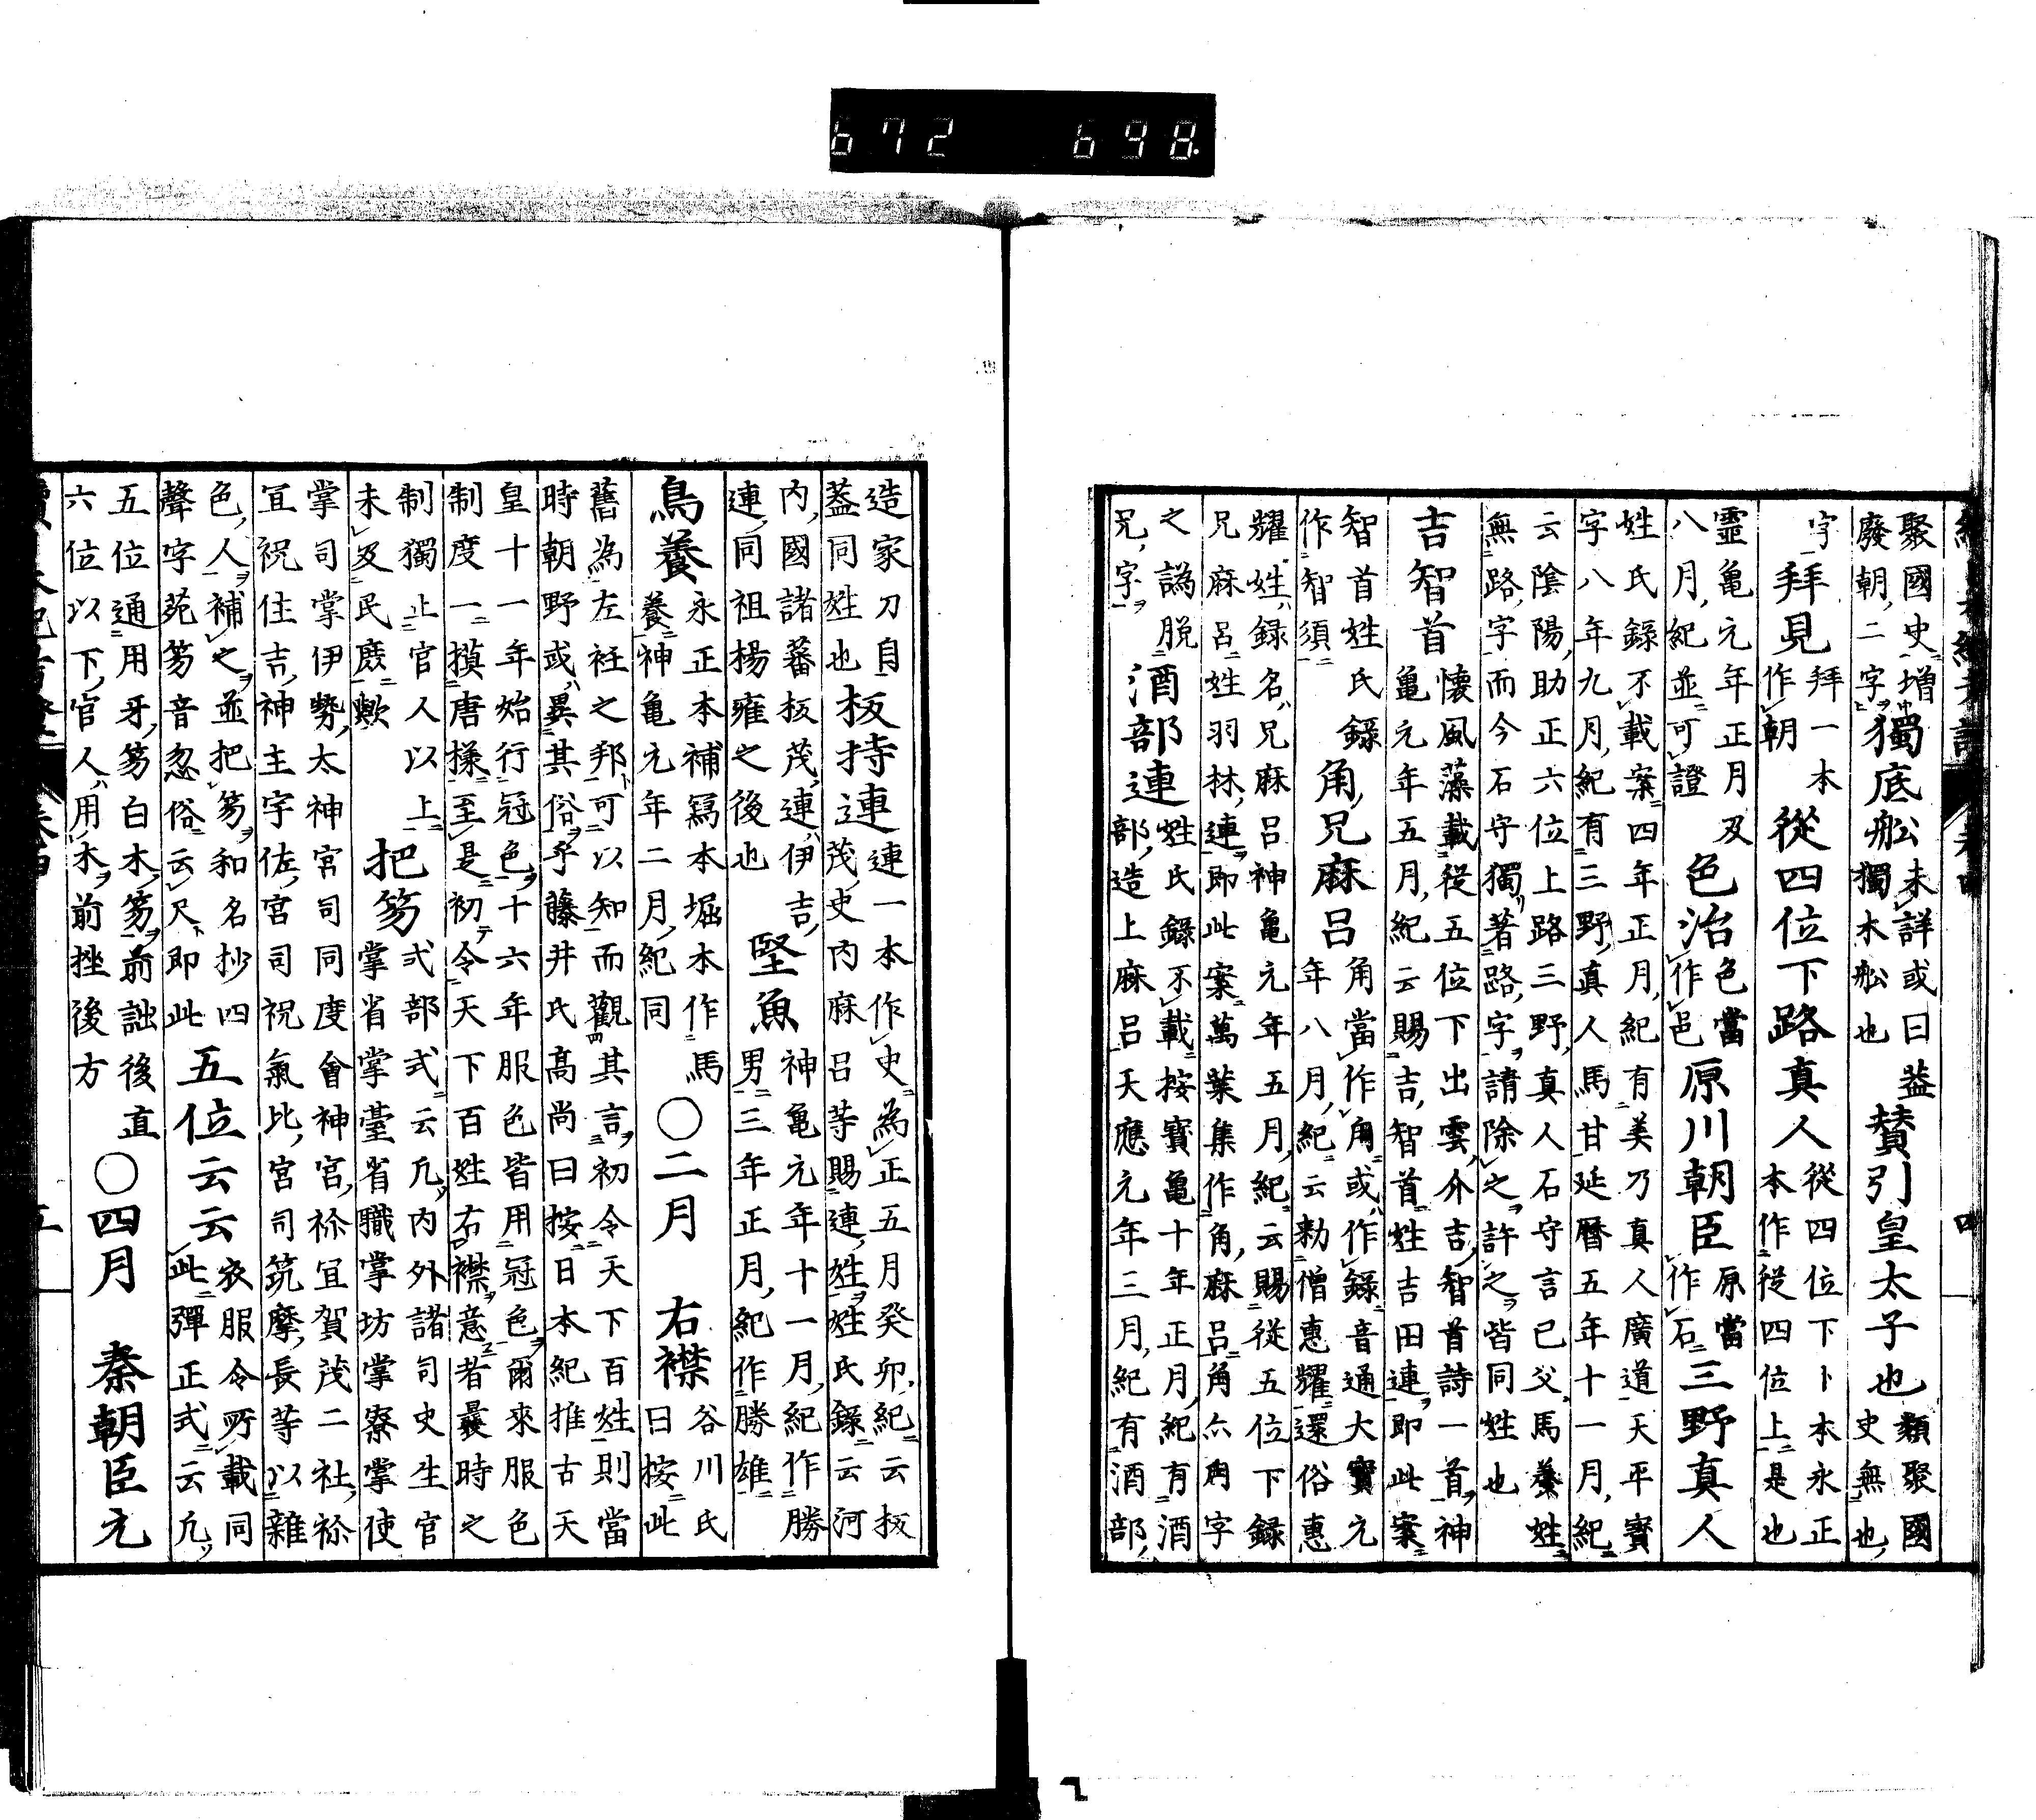 聚國史増廢朝二字獨底舩未詳或曰蓋獨木舩也賛引皇太子也類聚國史無也
字拜見拜一本作朝從四位下路真人從四位下卜本永正本作從四位上是也
靈亀元年正月及八月紀並可證色治色當作邑原川朝臣原當作石三野真人
姓氏錄不載案四年正月紀有美乃真人廣道天平寳字八年九月紀有三野真人馬甘延暦五年十一月紀
云陰陽助正六位上路三野真人石守言已父馬養姓無路字而今石守獨著路字請除之許之皆同姓也
吉智首懐風藻載從五位下出雲介吉智首詩一首神亀元年五月紀云賜吉智首姓吉田連即此案
智首姓氏錄作智須角兄麻呂角當作甪或作録音通大寳元年八月紀云勅僧惠耀還俗惠
耀姓録名兄麻呂神亀元年五月紀云賜從五位下録兄麻呂姓羽林連即此案萬葉集作角麻呂角亦甪字
之譌脱兄字酒部連姓氏錄不載按寳亀十年正月紀有酒部造上麻呂天應元年三月紀有酒部
四
造家刀自蓋同姓也板持連連一本作史為正五月癸卯紀云板茂史内麻呂等賜連姓姓氏錄云河
内國諸蕃板茂連伊吉連同祖楊雍之後也堅魚神亀元年十一月紀作勝男三年正月紀作勝雄
鳥養永正本補寫本堀本作馬養神亀元年二月紀同〇二月 右襟谷川氏曰按此
舊為左衽之邦可以知而觀其言初令天下百姓則當時朝野或異其俗乎藤井氏髙尚曰按日本紀推古天
皇十一年始行冠色十六年服色皆用冠色爾來服色制度一摸唐様至是初令天下百姓右襟意者曩時之
制獨止官人以上未及民庶歟把笏式部式云凡内外諸司史生官掌省掌臺省職掌坊掌寮掌使
掌司掌伊勢太神宮司同度會神宮祢宜賀茂二社祢宜祝住吉神主宇佐宮司祝氣比宮司筑摩長等以雜
色人補之並把笏和名抄四聲字苑笏音忽俗云尺即此五位云云衣服令所載同此彈正式云凡
五位通用牙笏白木笏前詘後直六位以下官人用木前挫後方〇四月 秦朝臣元
672 698